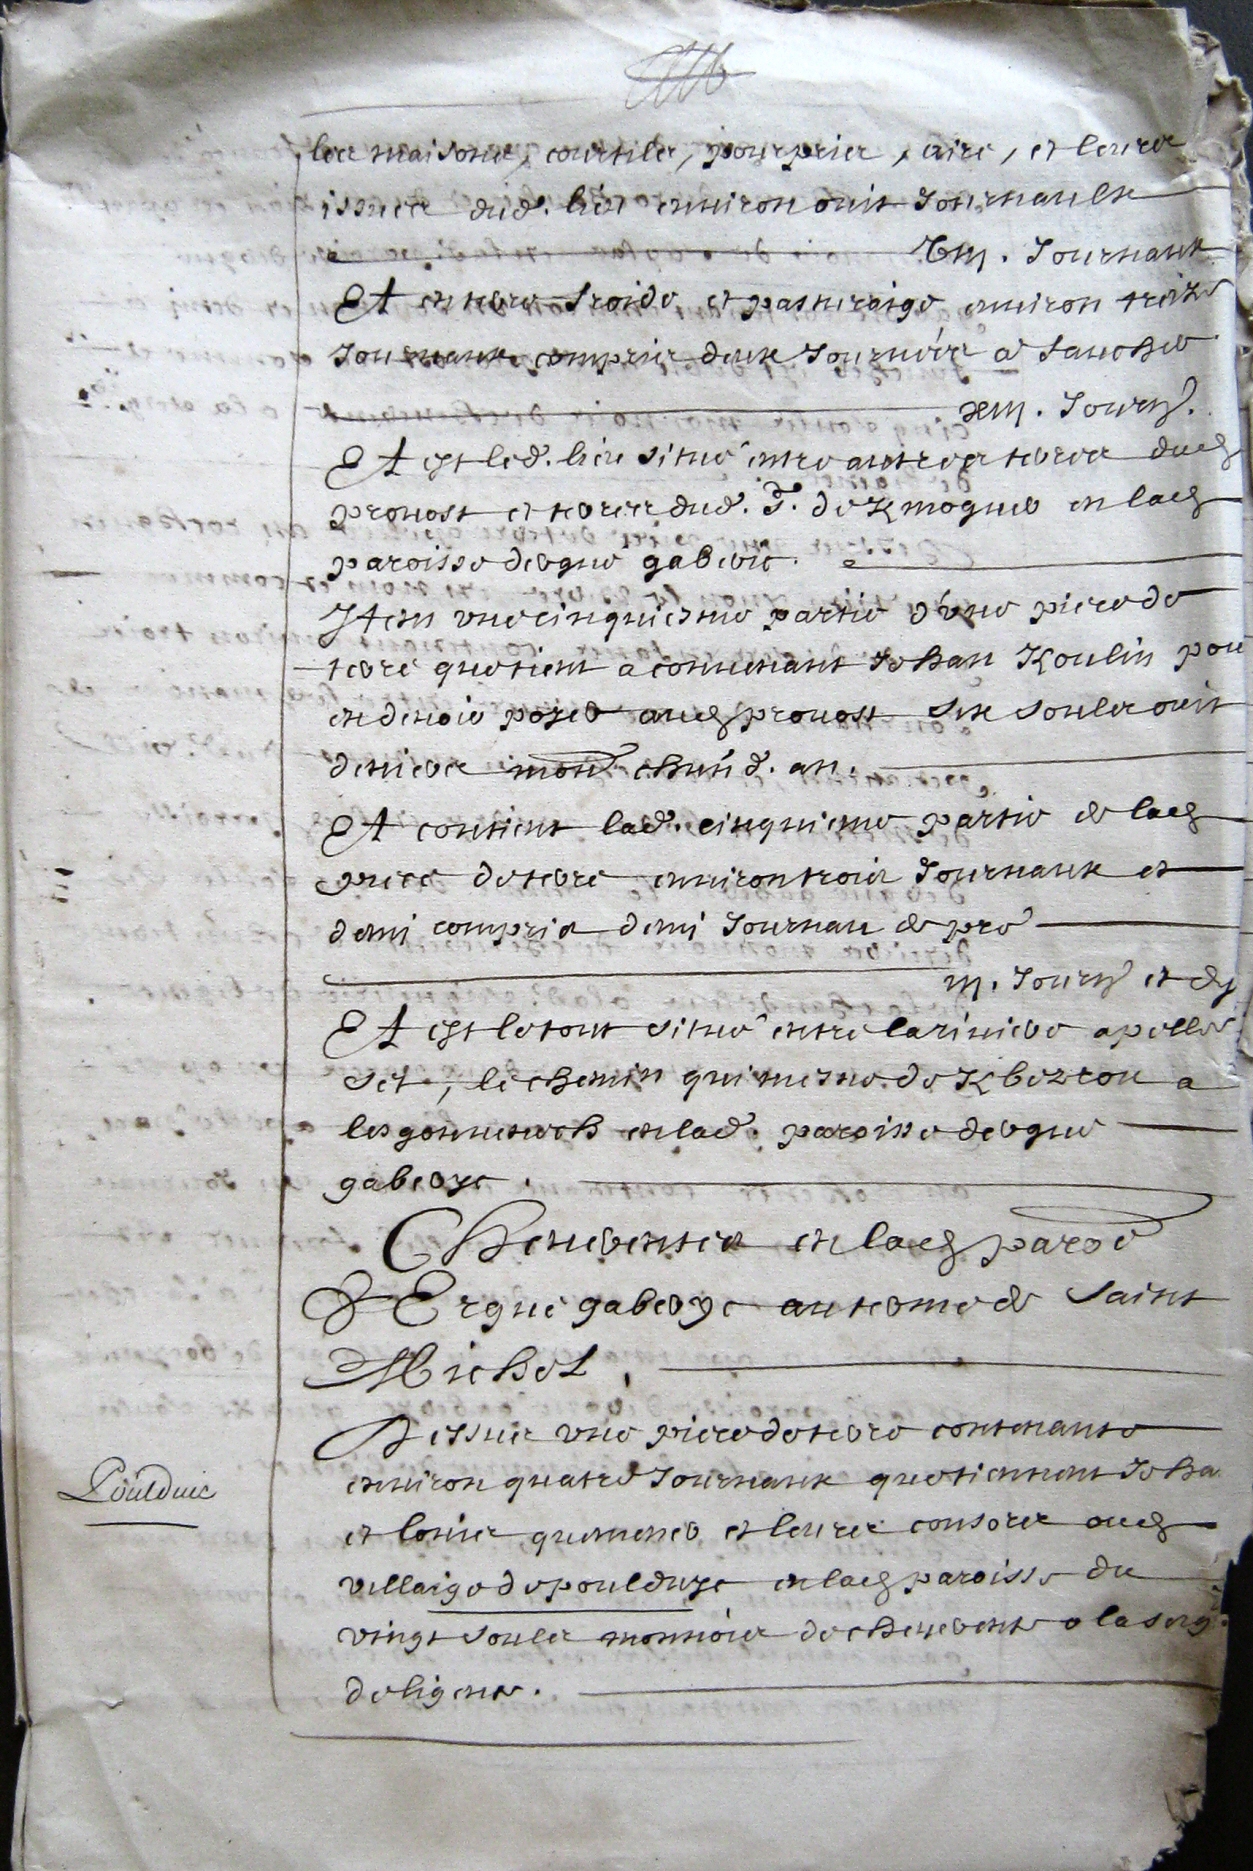 les maisons, courtils, pourpris, aire, et leurs
issues dud. lieu environ ouit Journaulx
viij. Journaux
Et en terre froide et pasturaige environ treize
Journaux compris deux Journées a faucher
xiij. Journ.
Et est led. lieu situé entre aultres terres dud
prouost et terres dud. Sr. de Kmoguer en lad
paroisse dergue gaberic.
Item une cinquiesme partie d'une piece de
terre que tient a conuenant Jehan Koulin pour
en deuoir poyer aud prouost six soulz ouit
deniers mon chun d. an.
Et contient lad. cinquieme partie de lad
piece de terre environ trois Journaux et
demi compris demi Journau de pré
iij. Journ et dy
Et est le tout situé entre la riviere apellee
Jet, le chemin qui mesne de Kbezrou a
lesgonnenech en lad. paroisse dergue
gaberye.
Cheneventes en lad paroe
d'Ergue gaberye au terme de Saint
Michel.
Dessus une piece de terre contenante
environ quatre Journaux que tiennent Jeha
et louis quemener et leurs consors oud
villaige de poulduye en lad paroisse du
vingt soulz monnoie de chenevente o la seig
de ligence.
Poulduic